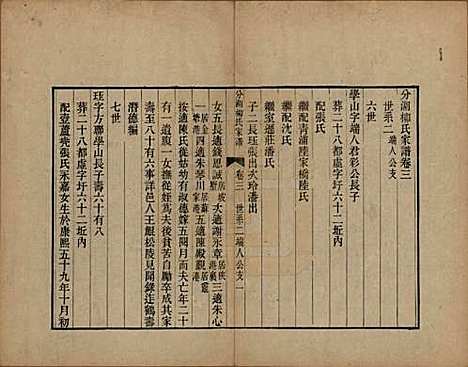 分湖柳氏家譜卷三
世系二 端人公支
六世
學山字端人君彩公長子
葬二十八都虛字圩六十二坵內
配張氏
繼配青浦陸家橋陸氏
繼配沈氏
繼室迎莊潘氏
子二長珏張出次玲潘出
分湖柳氏家譜 卷三 世系二端人公支 一
女五長適錢思誠居坡 次適謝永章居 三適朱心
居金 四適朱琴川居蘇家港 五適陳殿觀居 港
按適陳氏從姑幼有淑德嫁五閱月而夫亡年二十
有一遺腹一女撫從姪爲夫後貧苦自勵卒成其家
壽至八十有六事詳邑人王鯤松陵見聞錄迮鶴壽
潛德編
七世
珏字方聯學山長子壽六十有八
葬二十八都虛字圩六十二坵內
配壺蘆兜張氏永嘉女生於康熙五十九年十月初